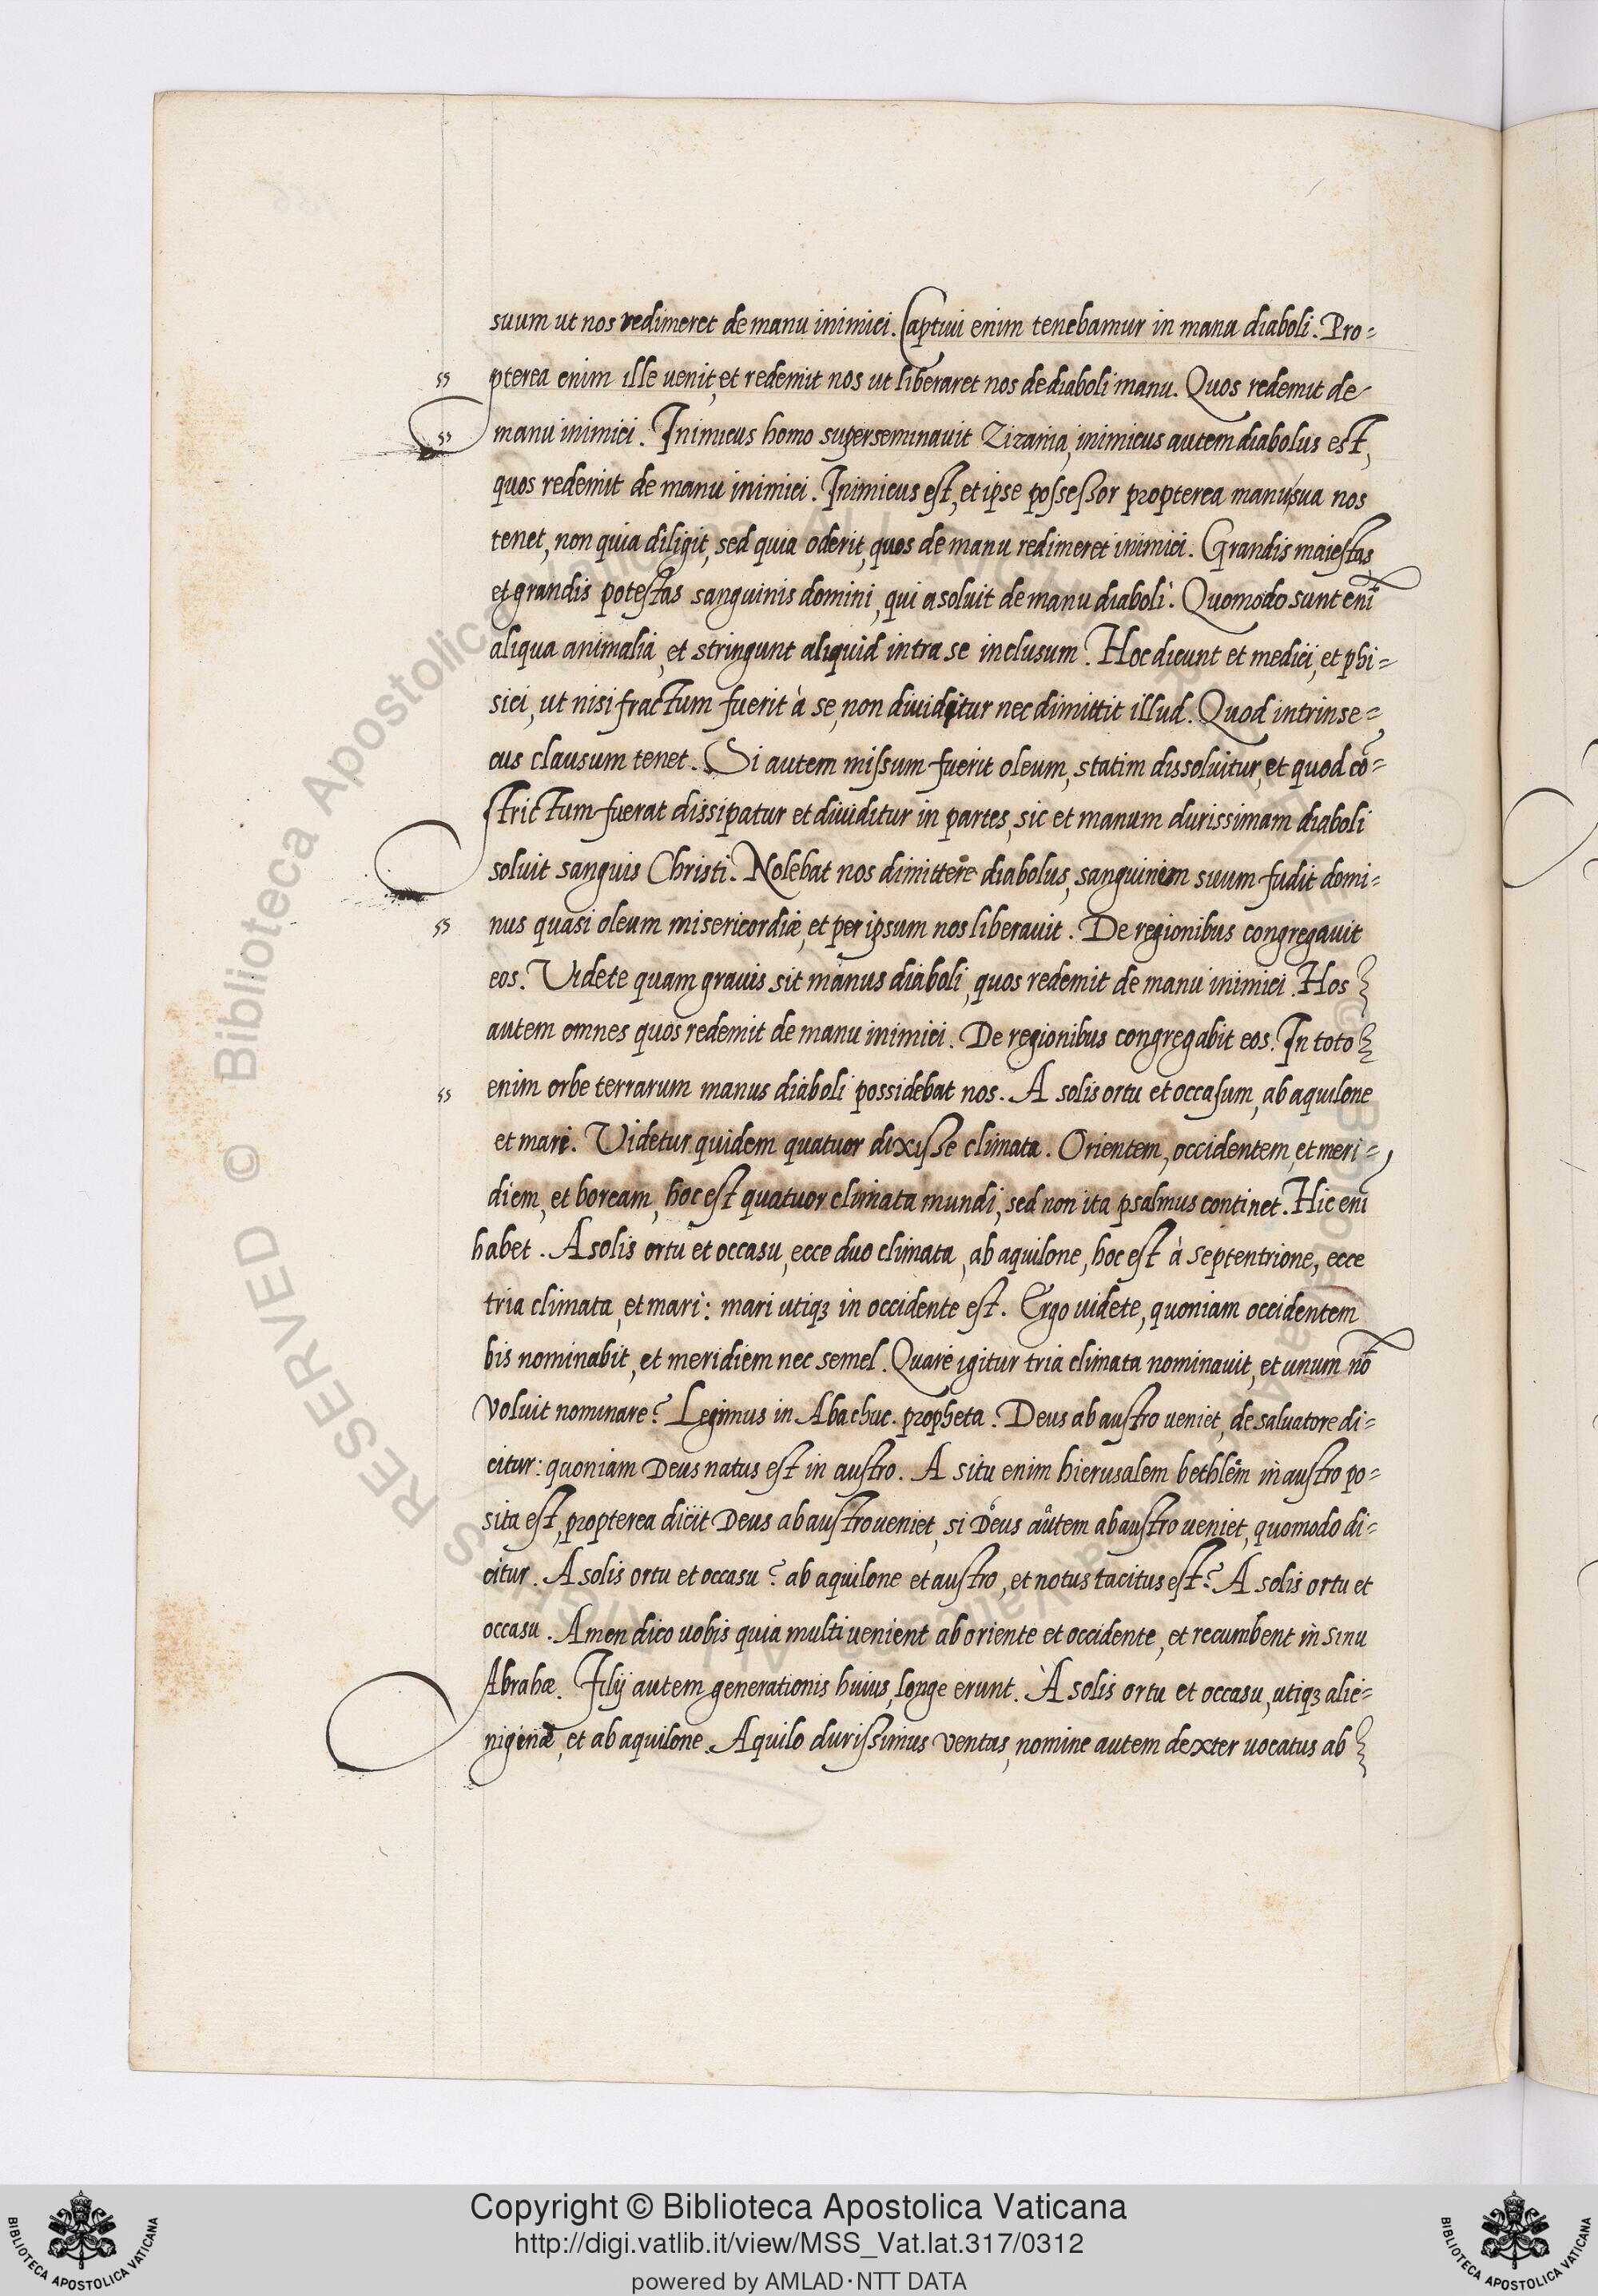 suum ut nos redimeret de manu inimici. Captiui enim tenebamur in manu diaboli. Pro=
pterea enim ille uenit, et redemit nos ut liberaret nos de diaboli manu. Quos redemit de
manu inimici. Inimicus homo superseminauit Zizania, inimicus autem diabolus est,
quos redemit de manu inimici. Inimicus est, et ipse possessor propterea manu sua nos
tenet, non quia diligit, sed quia oderit, quos de manu redimeret inimici. Grandis maiestas
et grandis potestas sanguinis domini, qui asoluit de manu diaboli. Quomodo sunt eni̅
aliqua animalia, et stringunt aliquid intra se inclusum. Hoc dicunt et medici, et phi=
sici, ut nisi fractum fuerit à se, non diuiditur nec dimittit illud. Quod intrinse=
cus clausum tenet. Si autem missum fuerit oleum, statim dissoluitur, et quod co̅=
strictum fuerat dissipatur et diuiditur in partes, sic et manum durissimam diaboli
soluit sanguis Christi. Nolebat nos dimittere diabolus, sanguinem suum fudit domi=
nus quasi oleum misericordiæ, et per ipsum nos liberauit. De regionibus congregauit
eos. Videte quam grauis sit manus diaboli, quos redemit de manu inimici. Hos
autem omnes quos redemit de manu inimici. De regionibus congregabit eos. In toto
enim orbe terrarum manus diaboli possidebat nos. A solis ortu et occasum, ab aquilone
et mari. Videtur quidem quatuor dixisse climata. Orientem, occidentem, et meri=
diem, et boream, hoc est quatuor climata mundi, sed non ita psalmus continet. Hic eni̅
habet. A solis ortu et occasu, ecce duo climata, ab aquilone, hoc est à septentrione, ecce
tria climata, et mari: mari utiqꝫ in occidente est. Ergo uidete, quoniam occidentem
bis nominabit, et meridiem nec semel. Quare igitur tria climata nominauit, et unum no̅
voluit nominare? Legimus in Abachuc. propheta. Deus ab austro ueniet, de saluatore di=
citur: quoniam Deus natus est in austro. A situ enim hierusalem bethlem in austro po=
sita est, propterea dicit Deus ab austro ueniet, si Deus autem ab austro ueniet, quomodo di=
citur. A solis ortu et occasu? ab aquilone et austro, et notus tacitus est? A solis ortu et
occasu. Amen dico uobis quia multi uenient ab oriente et occidente, et recumbent in sinu
Abrahæ. Filij autem generationis huius, longe erunt. À solis ortu et occasu, utiqꝫ alie=
nigenæ, et ab aquilone. Aquilo durissimus ventus, nomine autem dexter uocatus ab
Copyright © Biblioteca Apostolica Vaticana
http://digi.vatlib.it/view/MSS_Vat.lat.317/0312
powered by AMLAD·NTT DATA